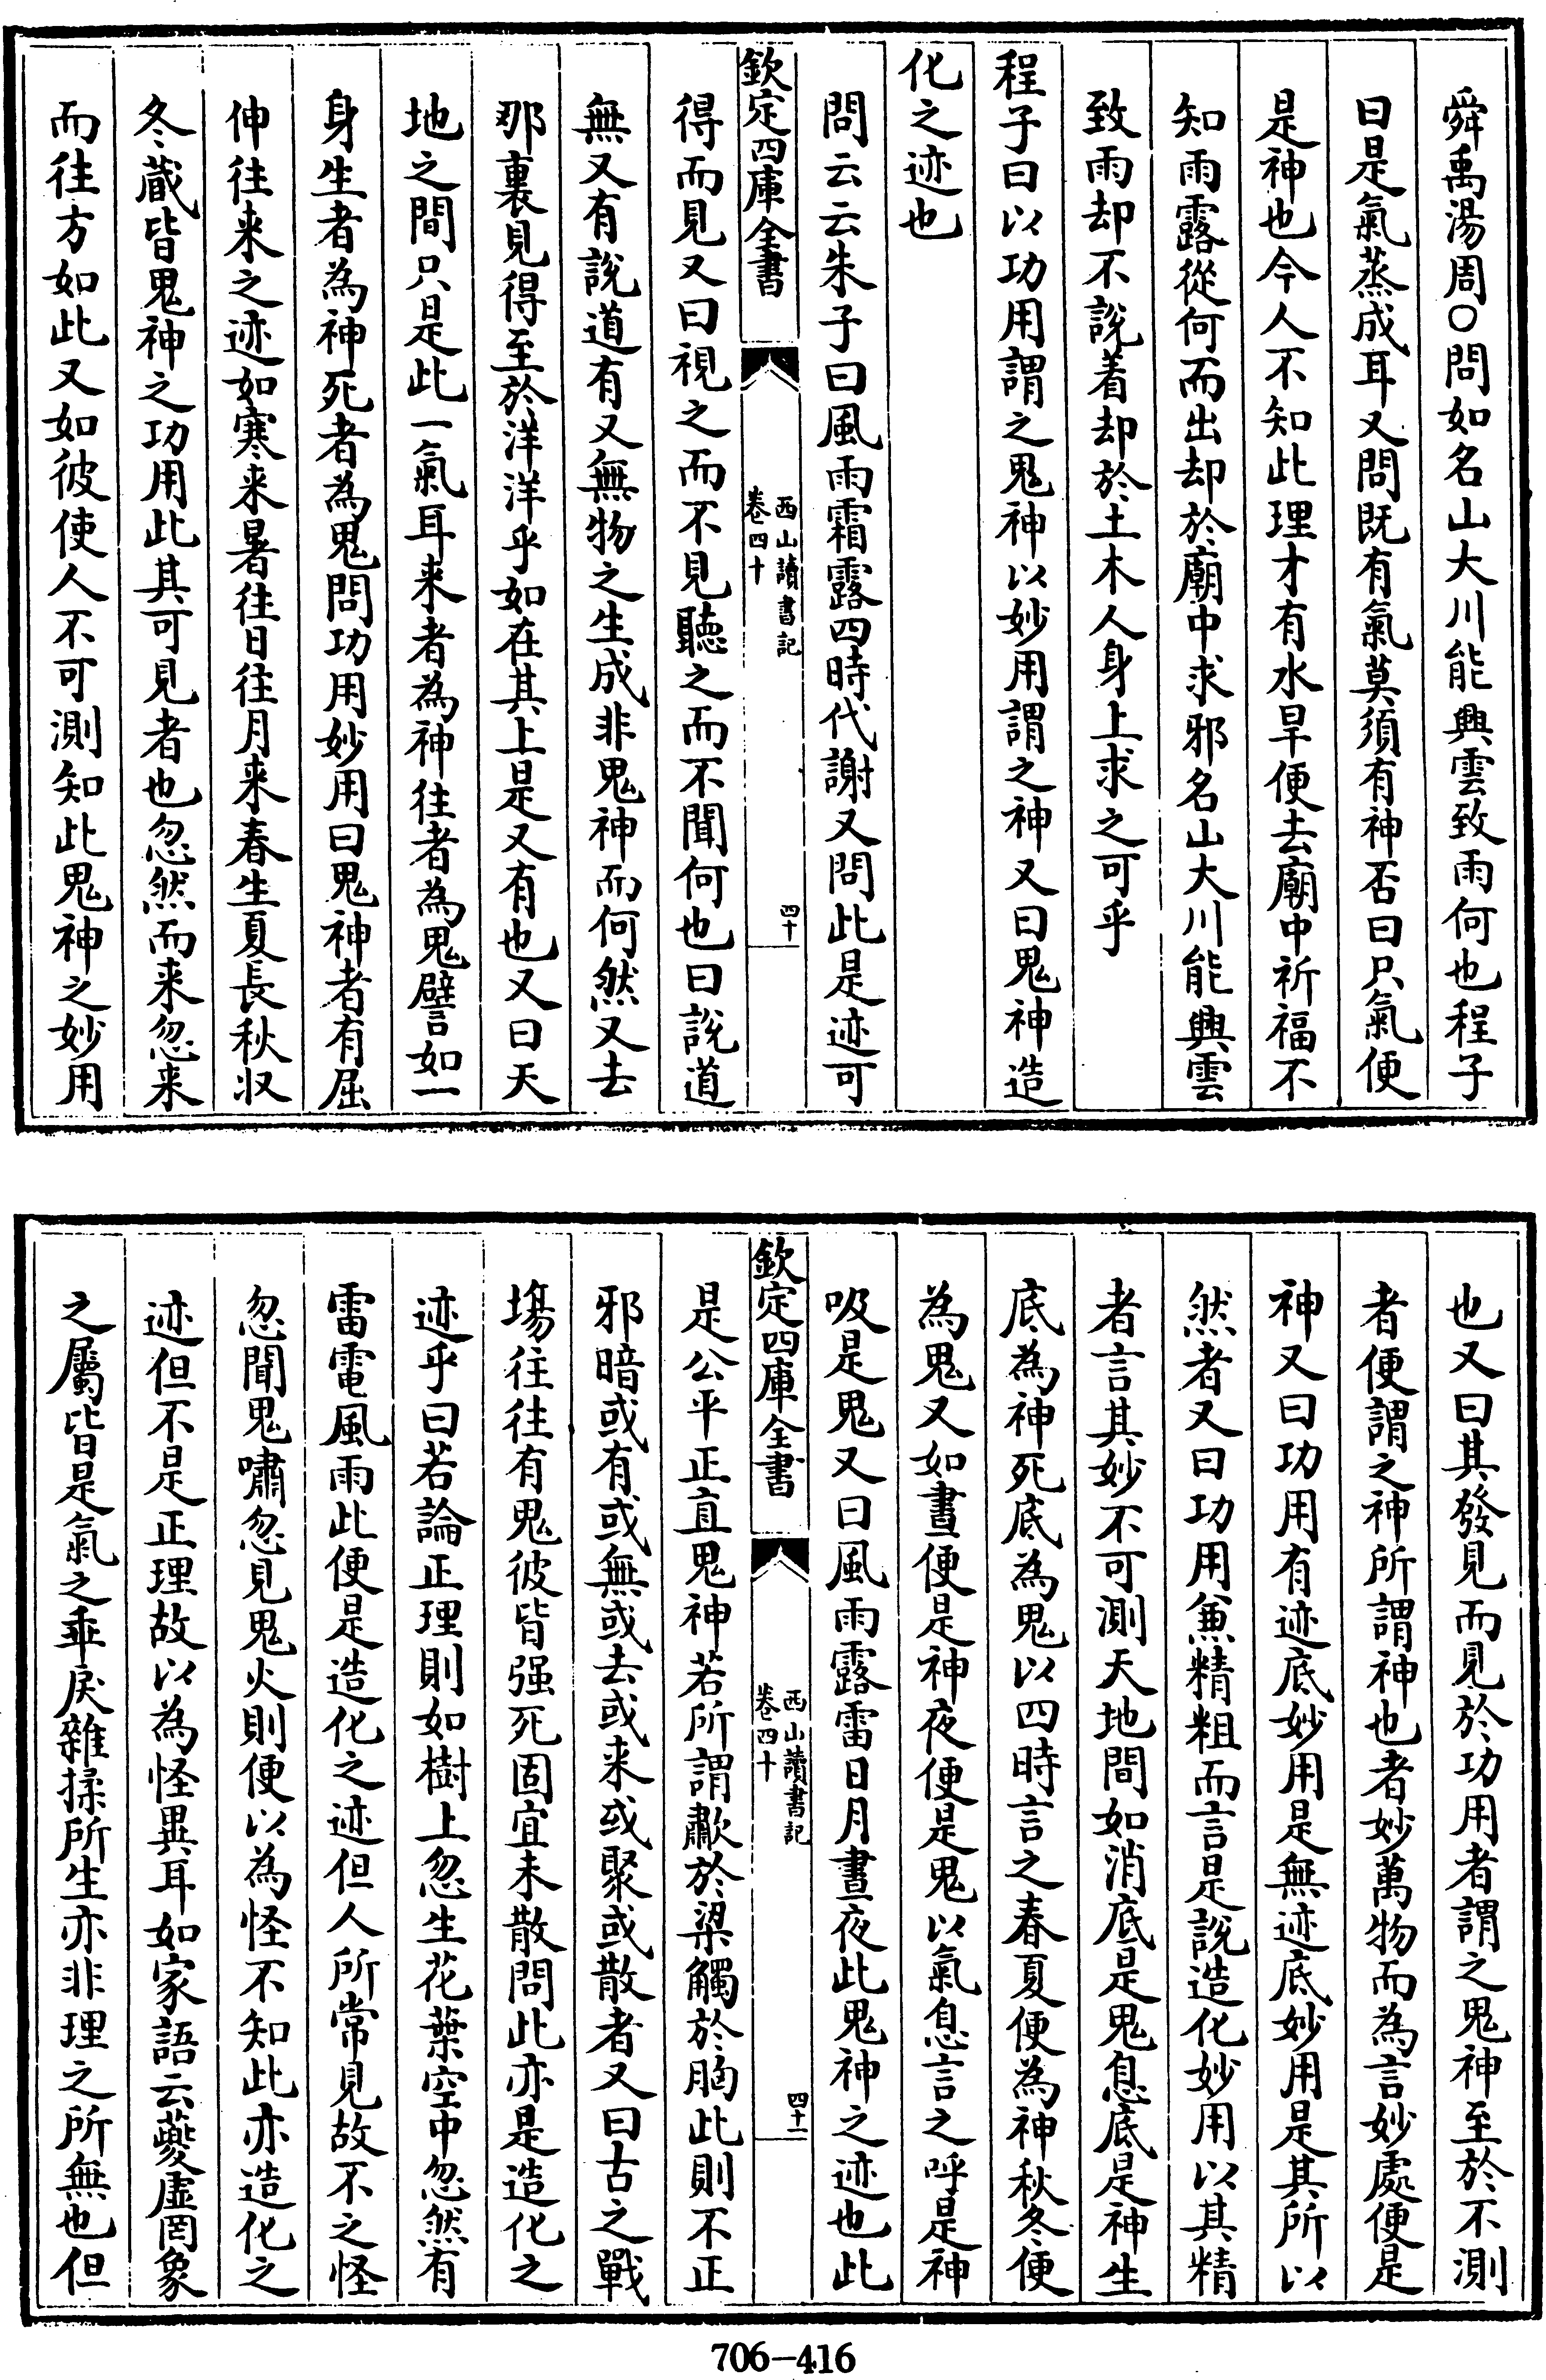 舜禹湯周○問如名山大川能興雲致雨何也程子
曰是氣蒸成耳又問既有氣莫須有神否曰只氣便
是神也今人不知此理才有水旱便去廟中祈福不
知雨露從何而出却於廟中求邪名山大川能興雲
致雨却不說着却於土木人身上求之可乎
程子曰以功用謂之鬼神以妙用謂之神又曰鬼神造
化之迹也
問云云朱子曰風雨霜露四時代謝又問此是迹可
欽定四庫全書
西山讀書記
卷四十
四十
得而見又曰視之而不見聽之而不聞何也曰說道
無又有說道有又無物之生成非鬼神而何然又去
那裏見得至於洋洋乎如在其上是又有也又曰天
地之間只是此一氣耳来者為神往者為鬼譬如一
身生者為神死者為鬼問功用妙用曰鬼神者有屈
伸往来之迹如寒来暑往日往月来春生夏長秋收
冬藏皆鬼神之功用此其可見者也忽然而来忽来
而往方如此又如彼使人不可測知此鬼神之妙用
也又曰其發見而見於功用者謂之鬼神至於不測
者便謂之神所謂神也者妙萬物而為言妙處便是
神又曰功用有迹底妙用是無迹底妙用是其所以
然者又曰功用兼精粗而言是說造化妙用以其精
者言其妙不可測天地間如消底是鬼息底是神生
底為神死底為鬼以四時言之春夏便為神秋冬便
為鬼又如晝便是神夜便是鬼以氣息言之呼是神
吸是鬼又曰風雨露雷日月晝夜此鬼神之迹也此
欽定四庫全書
西山讀書記
卷四十
四十一
是公平正直鬼神若所謂歗於梁觸於胸此則不正
邪暗或有或無或去或来或聚或散者又曰古之戰
塲往往有鬼彼皆强死固宜未散問此亦是造化之
迹乎曰若論正理則如樹上忽生花葉空中忽然有
雷電風雨此便是造化之迹但人所常見故不之怪
忽聞鬼嘯忽見鬼火則便以為怪不知此亦造化之
迹但不是正理故以為怪異耳如家語云夔虛罔象
之屬皆是氣之乖戾雜揉所生亦非理之所無也但
706-416